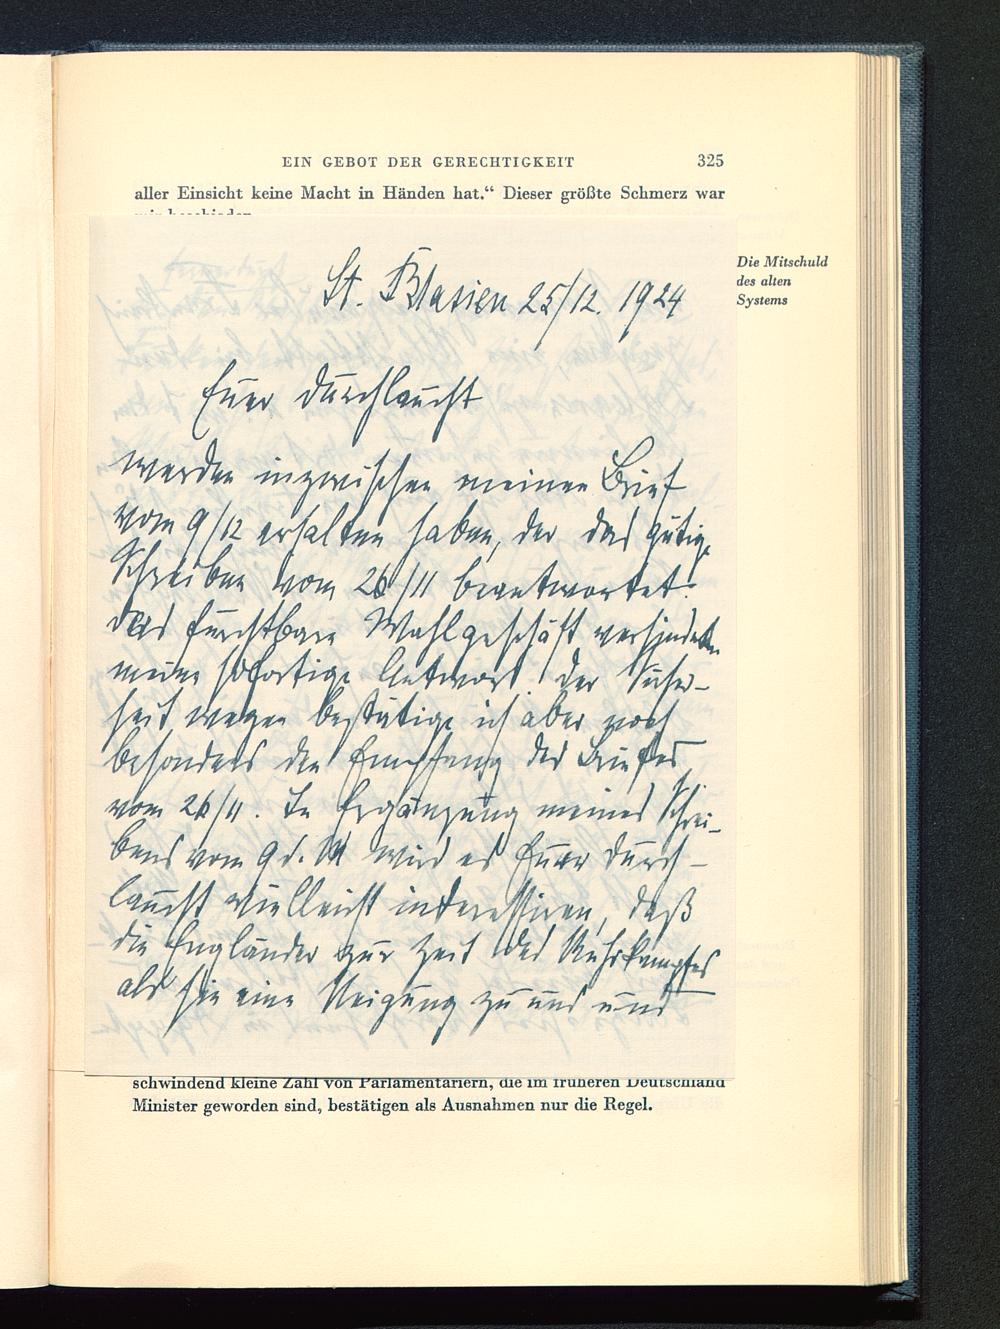 EIN GEBOT DER GERECHTIGKEIT 325
aller Einsicht keine Macht in Händen hat.“ Dieser größte Schmerz war
mir beschieden
Die Mitschuld
des alten
Systems
St. Blasien 25/12. 1924
Euer Durchlaucht
werden inzwischen meinen Brief
vom 9/12 erhalten haben, der das gütige
Schreiben vom 26/11 beantwortet.
Das furchtbare Wahlgeschäft verhinderte
meine sofortige Antwort. Der Sicher-
heit wegen bestätige ich aber noch
besonders den Empfang des Briefes
vom 26/11. In Ergänzung meines Schrei-
bens vom 9 d. M wird es Euer Durch-
laucht vielleicht interessiren, daß
die Engländer zur Zeit des Ruhrkampfes
als sie eine Neigung zu uns und
schwindend kleine Zahl von Parlamentariern, die im früheren Deutschland
Minister geworden sind, bestätigen als Ausnahmen nur die Regel.